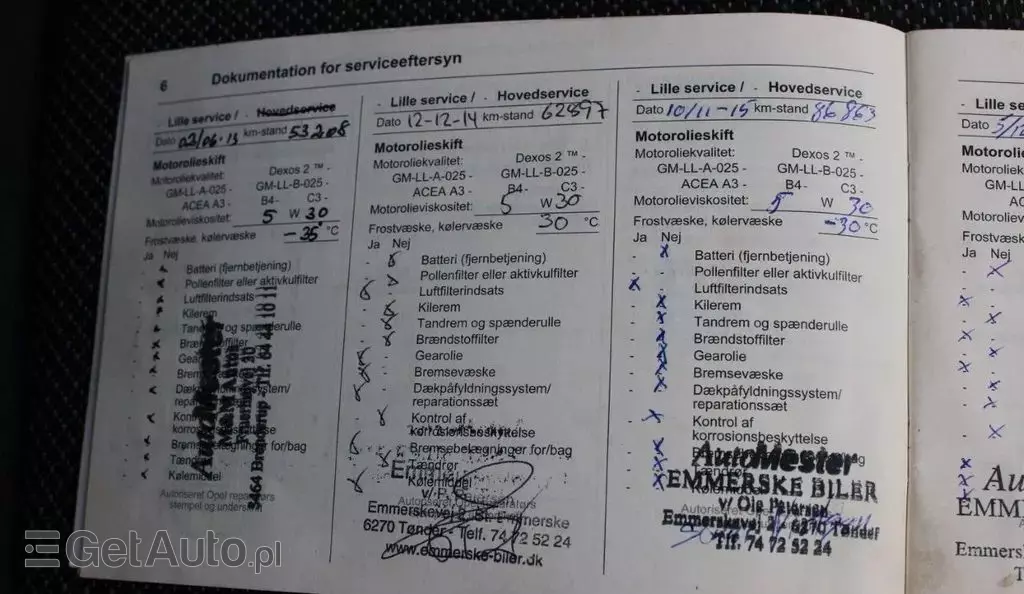 6
Dokumentation for serviceeftersyn
- Lille service / - Hovedservice
Dato 02/06-13 km-stand 53208
Motorolieskift
Motoroliekvalitet: Dexos 2 ™ -
GM-LL-A-025 - GM-LL-B-025 -
ACEA A3 - B4- C3 -
Motorolieviskositet: 5 W 30
Frostvæske, kølervæske -35 °C
Ja Nej
Batteri (fjernbetjening)
Pollenfilter eller aktivkulfilter
Luftfilterindsats
Kilerem
Tandrem og spænderulle
Brændstoffilter
Bremsevæske
korrosionsbeskyttelse
Kølemiddel
Autoriseret Opel reparatørs
stempel og
Tlf. 64 44 10 11
- Lille service / - Hovedservice
Dato 12-12-14 km-stand 62897
Motorolieskift
Motoroliekvalitet: Dexos 2 ™ -
GM-LL-A-025 - GM-LL-B-025 -
ACEA A3 - B4- C3 -
Motorolieviskositet: 5 W 30
Frostvæske, kølervæske 30 °C
Ja Nej
Batteri (fjernbetjening)
Pollenfilter eller aktivkulfilter
Luftfilterindsats
Kilerem
Tandrem og spænderulle
Brændstoffilter
Gearolie
Bremsevæske
Dækpåfyldningssystem/
reparationssæt
Kontrol af
korrosionsbeskyttelse
Bremsebelægninger for/bag
Tændrør
Kølemiddel
Emmerskevej
6270 Tønder - Telf. 74 72 52 24
www.emmerske-biler.dk
- Lille service / - Hovedservice
Dato 10/11-15 km-stand 86863
Motorolieskift
Motoroliekvalitet: Dexos 2 ™ -
GM-LL-A-025 - GM-LL-B-025 -
ACEA A3 - B4- C3 -
Motorolieviskositet: 5 W 30
Frostvæske, kølervæske -30 °C
Ja Nej
Batteri (fjernbetjening)
Pollenfilter eller aktivkulfilter
Luftfilterindsats
Kilerem
Tandrem og spænderulle
Brændstoffilter
Gearolie
Bremsevæske
Dækpåfyldningssystem/
reparationssæt
Kontrol af
korrosionsbeskyttelse
AutoMester
EMMERSKE BILER
v/ Ole Petersen
Emmerskevej 6270 Tønder
Tlf. 74 72 52 24
- Lille se
Dato
Motorolie
Motorolie
GM-LL
AC
Motoroliev
Frostvæsk
Ja Nej
Au
EMM
Emmers
T
GetAuto.pl